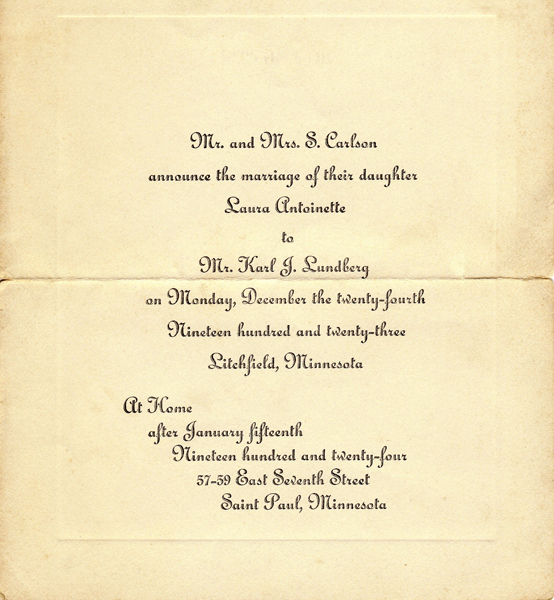 Mr. and Mrs. S. Carlson
announce the marriage of their daughter
Laura Antoinette
to
Mr. Karl J. Lundberg
on Monday, December the twenty-fourth
Nineteen hundred and twenty-three
Litchfield, Minnesota
At Home
after January fifteenth
Nineteen hundred and twenty-four
57-59 East Seventh Street
Saint Paul, Minnesota